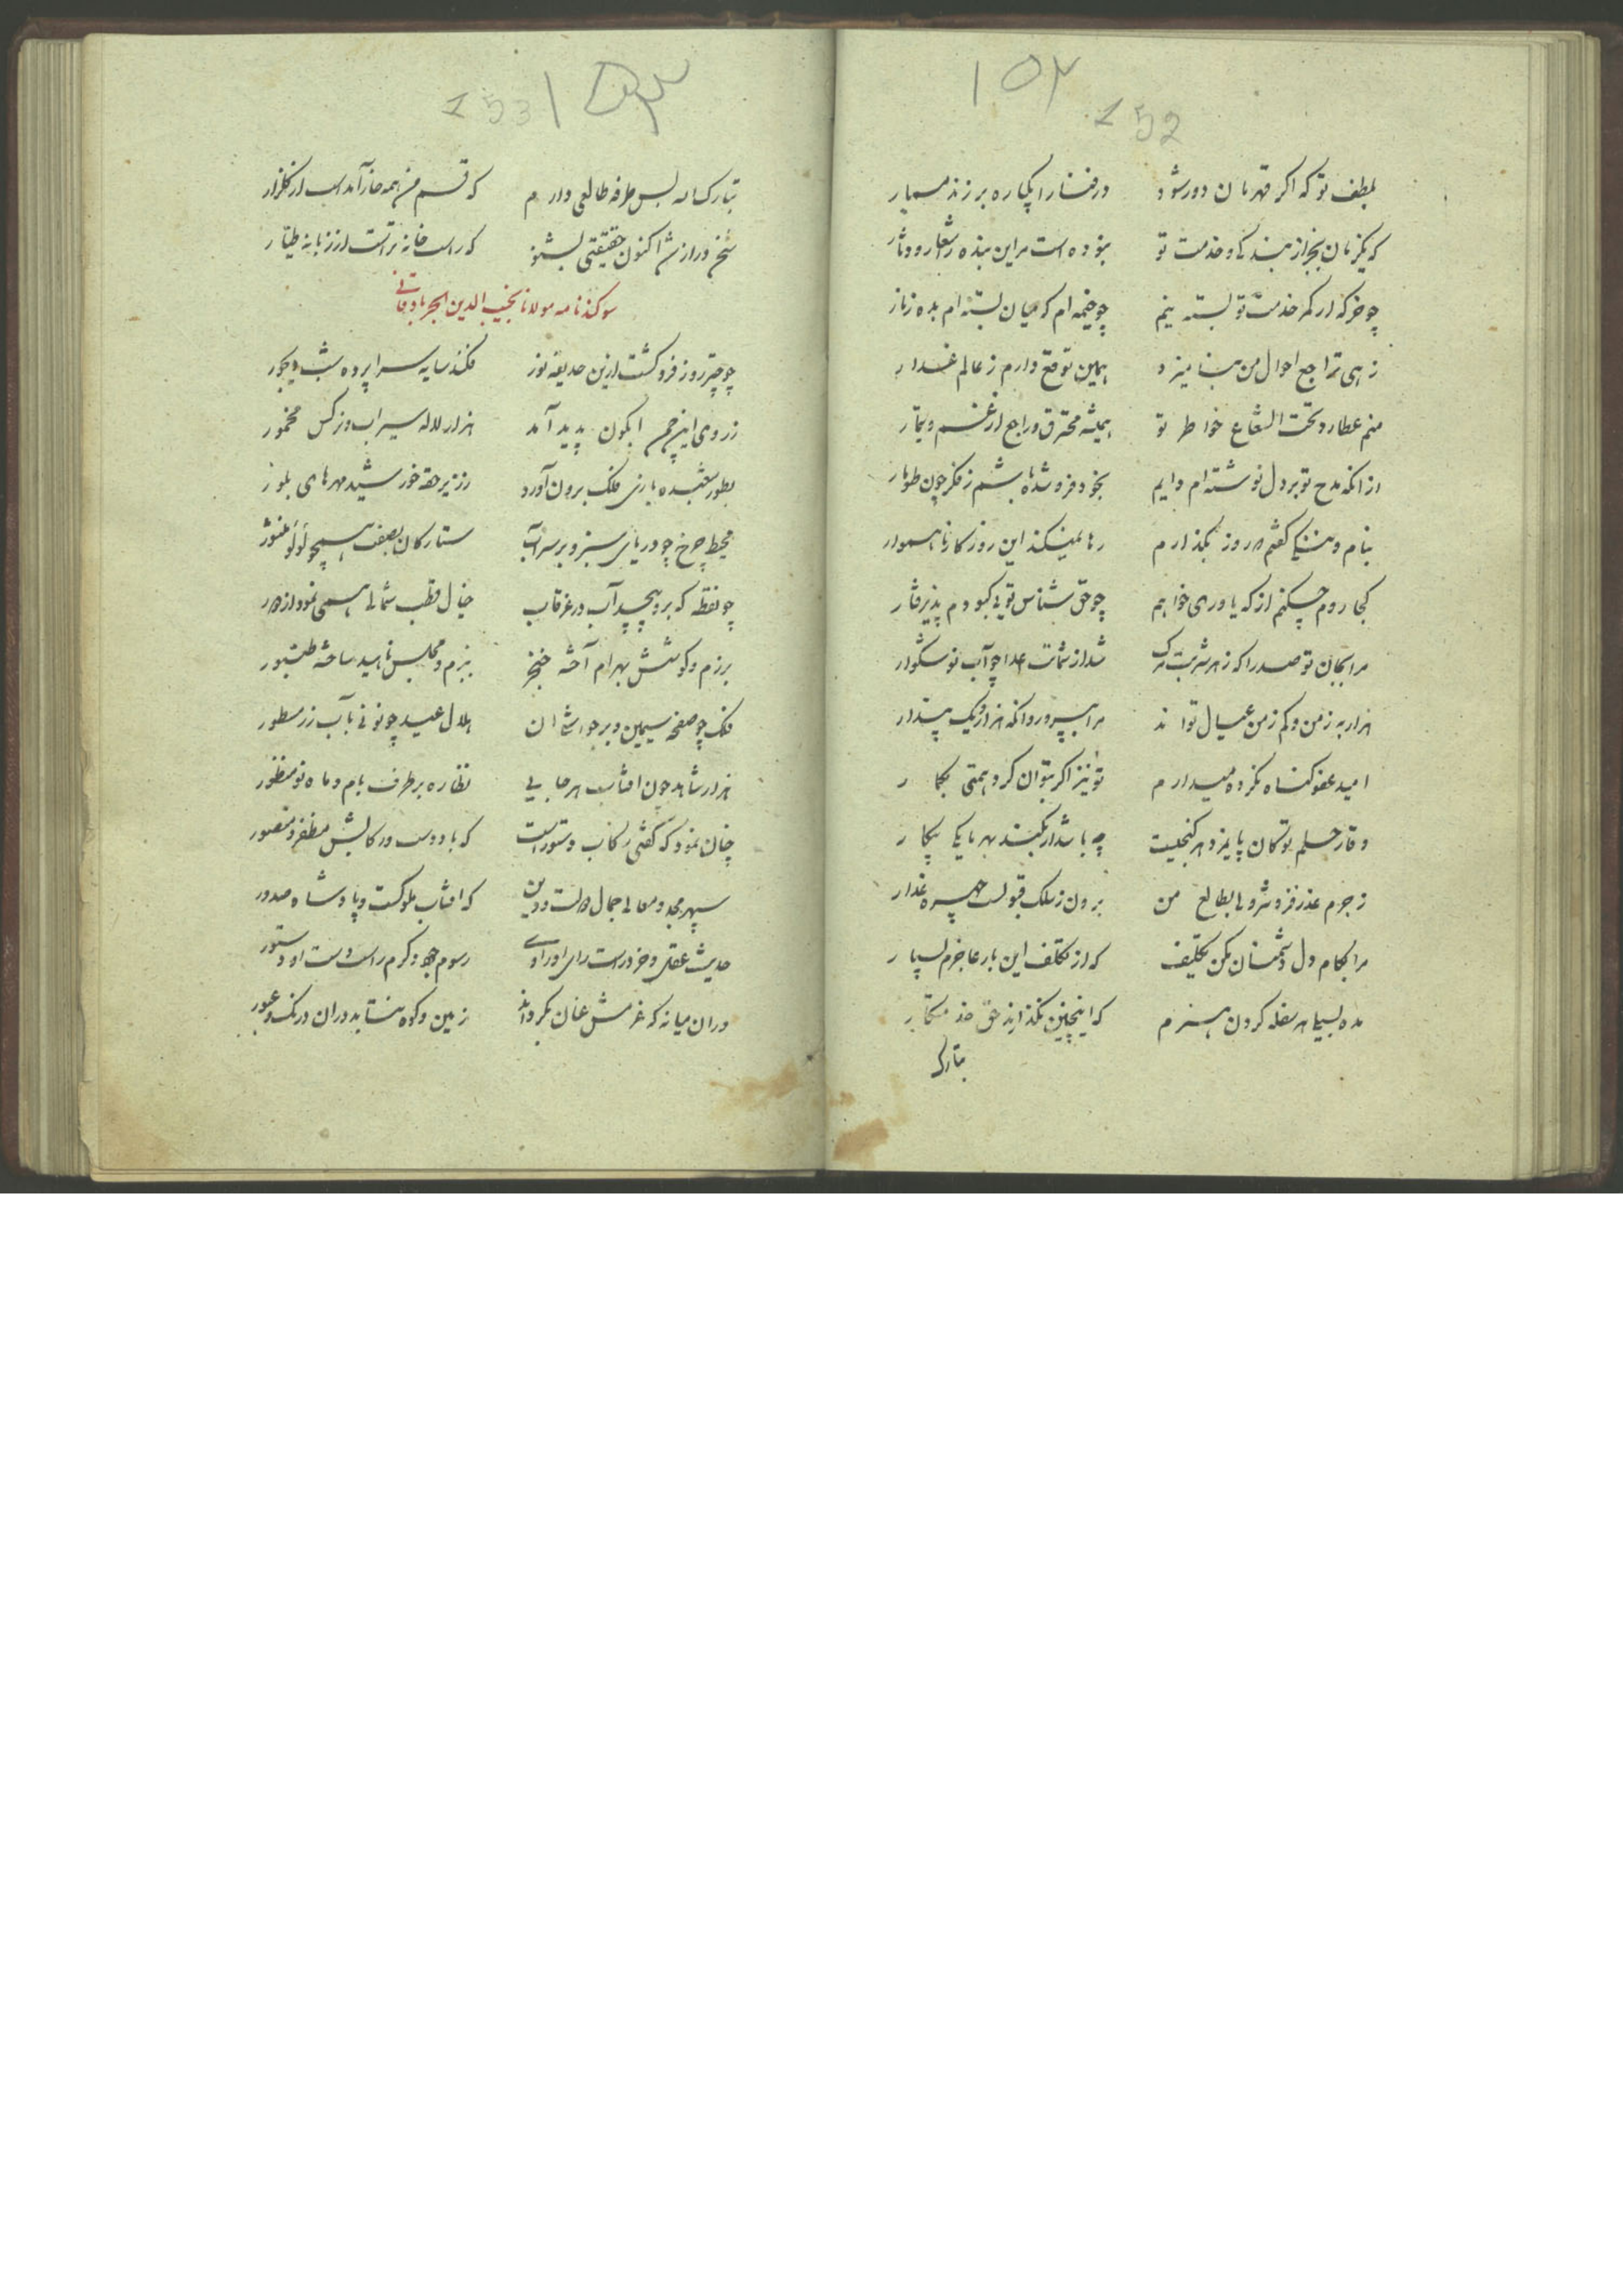 ١٥٢
152
بلطف تو که اگر قهرمان دور شود در فنا را یکباره بر زند مسمار
که یکزمان بجز از بندگی و خدمت تو نبوده است مر این بنده را شعار و دثار
چو خرگه ار کمر خدمت تو بسته نیم چو خیمه ام که میان بسته ام بده زنار
زهی تراجع احوال من همین توقع دارم ز عالم غدار
منم عطارد و تحت الشعاع خواطر تو همیشه محترق و راجع از غم و تیمار
از انکه مدح تو بر دل نوشته ام دایم بخود فرو شده باشم ز فکر چون طومار
بنام و ننک کفتم روز بکذارم رها نمیکند این روزکار ناهموار
کجا روم چکنم از که یاوری خواهم چو حق شناس تویی کبودم پذیرفتار
مرا بجان تو صدرا که زهر شربت مرک شد از شماتت اعدا چو آب نوشکوار
هزار به ز من و کم ز من عیال تواند مرا بپرور وانکه هزار و یک پندار
امید عفو کناه نکرده میدارم تو نیز اگر بتوان کرد همتی بکمار
وقار حلم تو
ز جرم عذر فروشد ولی بطالع من برون ز سلک قبولست چهره غدار
مرا بکام دل دشمنان مکن تکلیف که از تکلف این بار عاجزم بسیار
مده بسیلی هر سفله کردن هنرم که اینچنین نکذارند حق خدمتکار
تبارک
١٥٣
153
تبارک الله بس طرفه طالعی دارم که قسم من همه خار آمد است از کلزار
سخن دراز شد اکنون حقیقتی بشنو که راست خانه تر است از زبانه طیار
سوکند نامه مولانا نجیب الدین الجرباد قانی
چو چتر روز فرو کشت ازین حدیقه نور فکند سایه سراپرده شب دیجور
ز روی این چمن ابکون پدید آمد هزار لاله سیراب و نرکس مخمور
بطور شعبده بازی فلک برون آورد ز زیر حقه خورشید مهرهای بلور
محیط چرخ چو دریای سبز و بر سر آب ستارکان بصفت همچو لولو منثور
چو نقطه که برو پیچد آب در غرقاب خیال قطب شمالی همی نمود از دور
برزم و کوشش بهرام آخته خنجر ببزم و مجلس ناهید ساخته طنبور
فلک چو صفحه سیمین و بر حواشی ان هلال عید چو نونی بآب زر مسطور
هزار شاهد چون افتاب هر جایی نظاره بر طرف بام و ماه نو منظور
چنان نمود که کفتی رکاب دستور است که باد دوست در کابش مظفر و منصور
سپهر مجد و معالی جمال دولت و دین که افتاب ملوکست و پادشاه صدور
حدیث عقل و خرد راست رای او رسوم جود و کرم راست دست او دستور
در ان میانه که عزمش عنان بکرداند زمین و کوه نتابد دران درنک و عبور